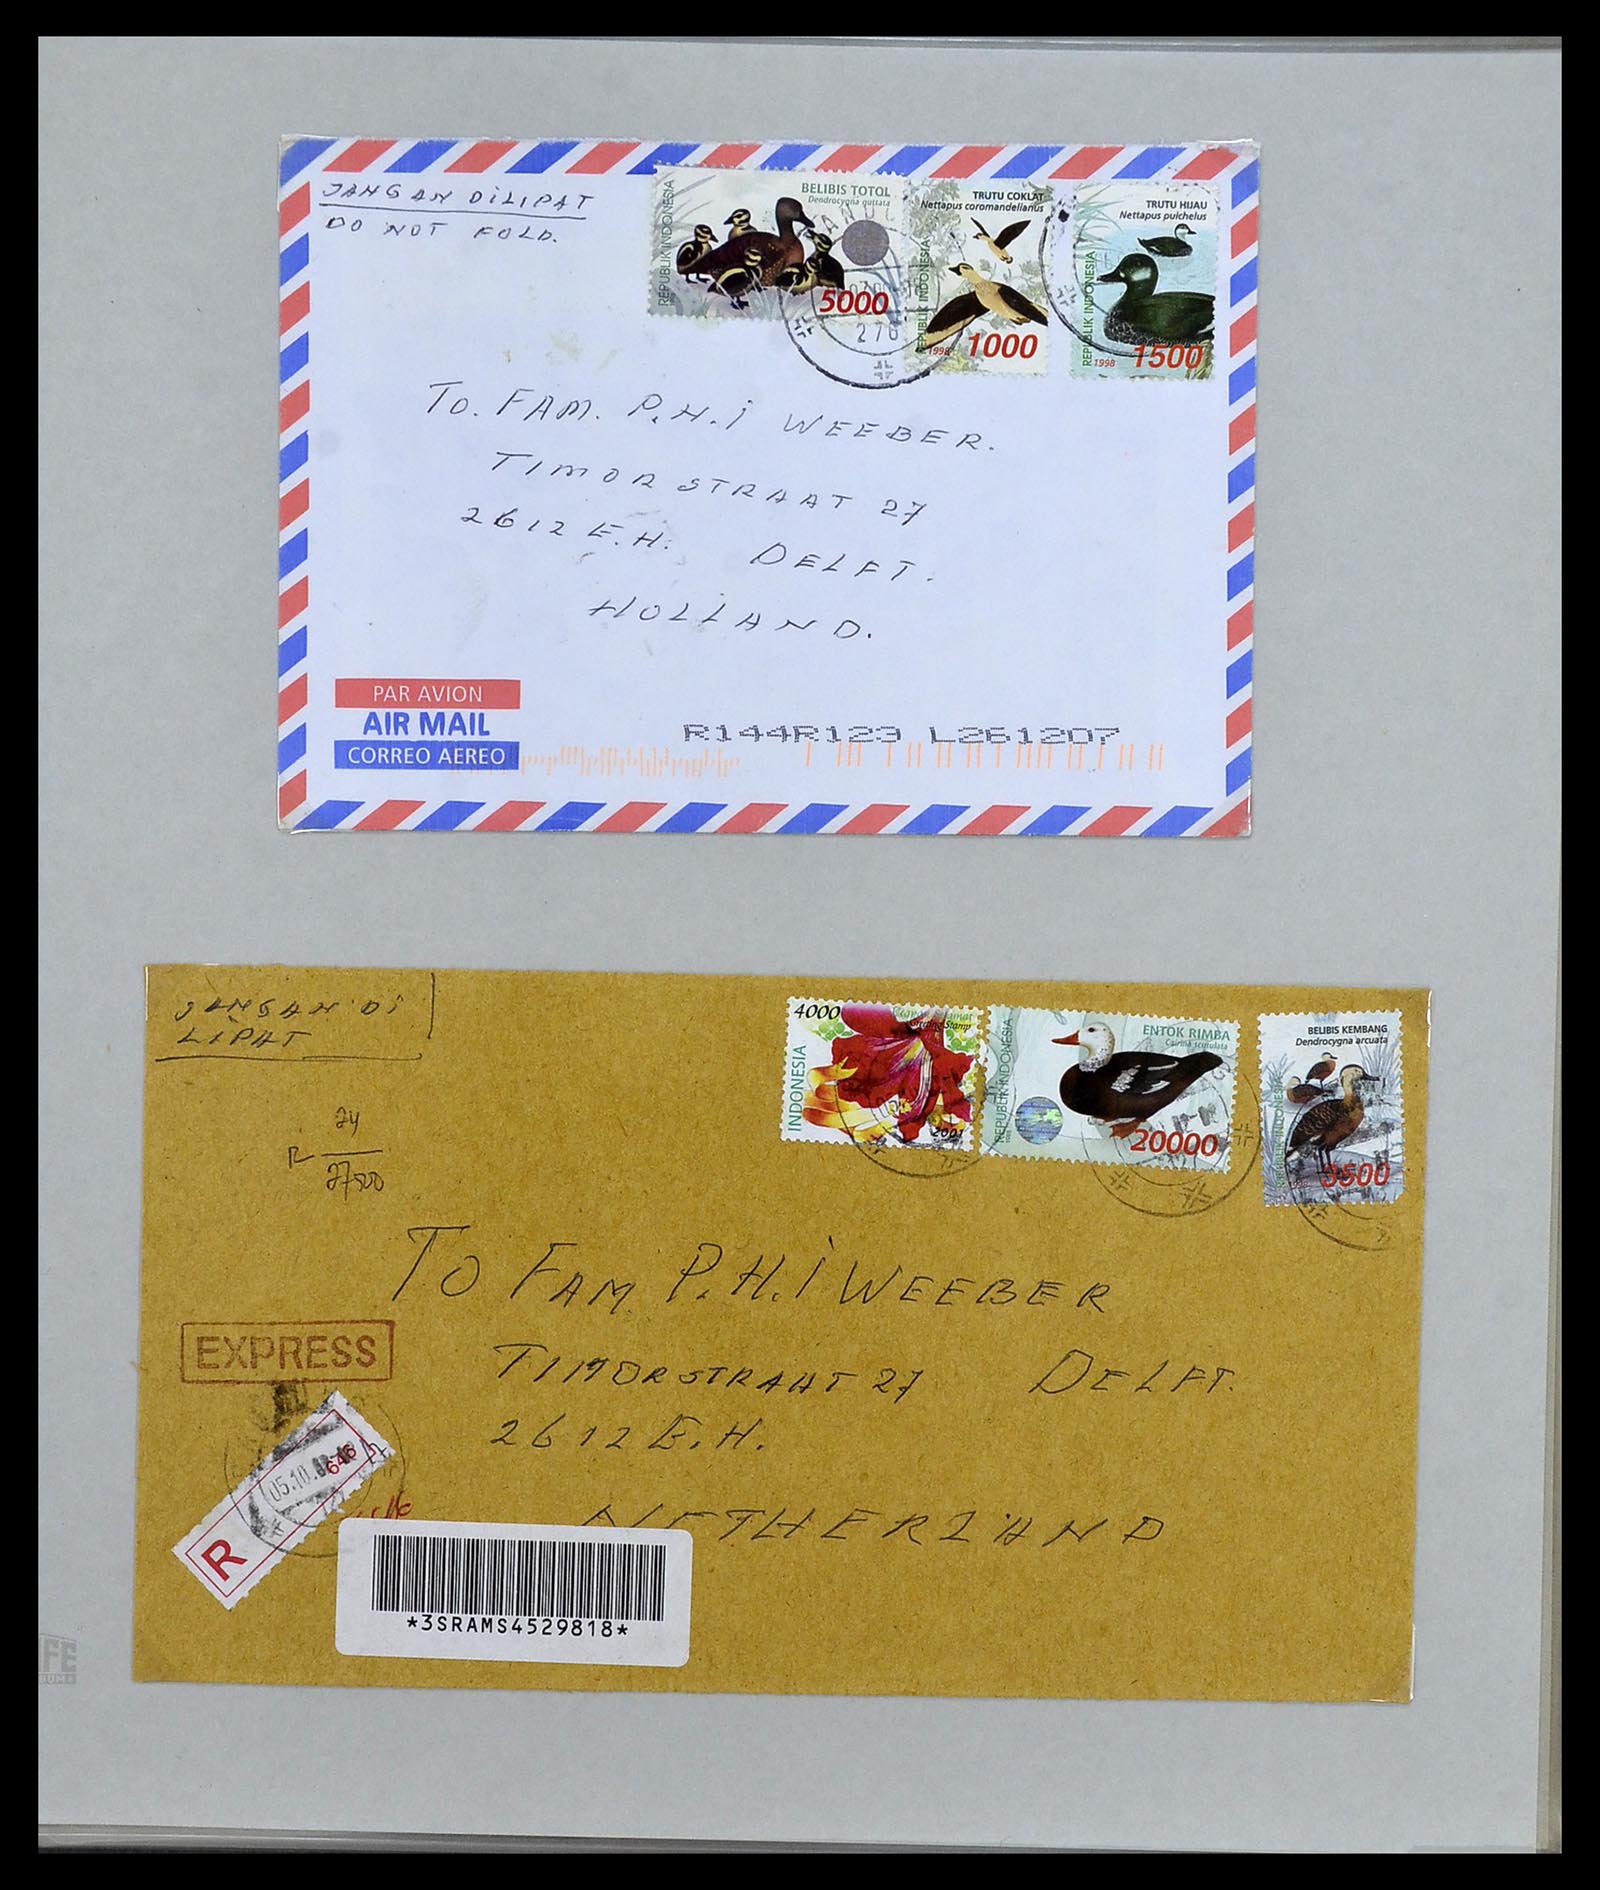 JANGAN DILIPAT
DO NOT FOLD.
REPUBLIK INDONESIA
BELIBIS TOTOL
Dendrocygna guttata
5000
REPUBLIK INDONESIA
TRUTU COKLAT
Nettapus coromandelianus
1998
1000
REPUBLIK INDONESIA
TRUTU HIJAU
Nettapus pulchelus
1998
1500
TO. FAM. P.H.i WEEBER.
TIMORSTRAAT 27
2612 E.H. DELFT.
HOLLAND.
PAR AVION
AIR MAIL
CORREO AEREO
R144R123 L261207
JANGAN Di
LiPAT
4000
Greeting Stamp
INDONESIA
2001
REPUBLIK INDONESIA
ENTOK RIMBA
Cairina scutulata
20000
BELIBIS KEMBANG
Dendrocygna arcuata
1998
3500
R 24
27500
TO FAM. P.H.i WEEBER
TIMORSTRAAT 27 DELFT.
2612 E.H.
NETHERLAND
EXPRESS
R 646
05.10.
*3SRAMS4529818*